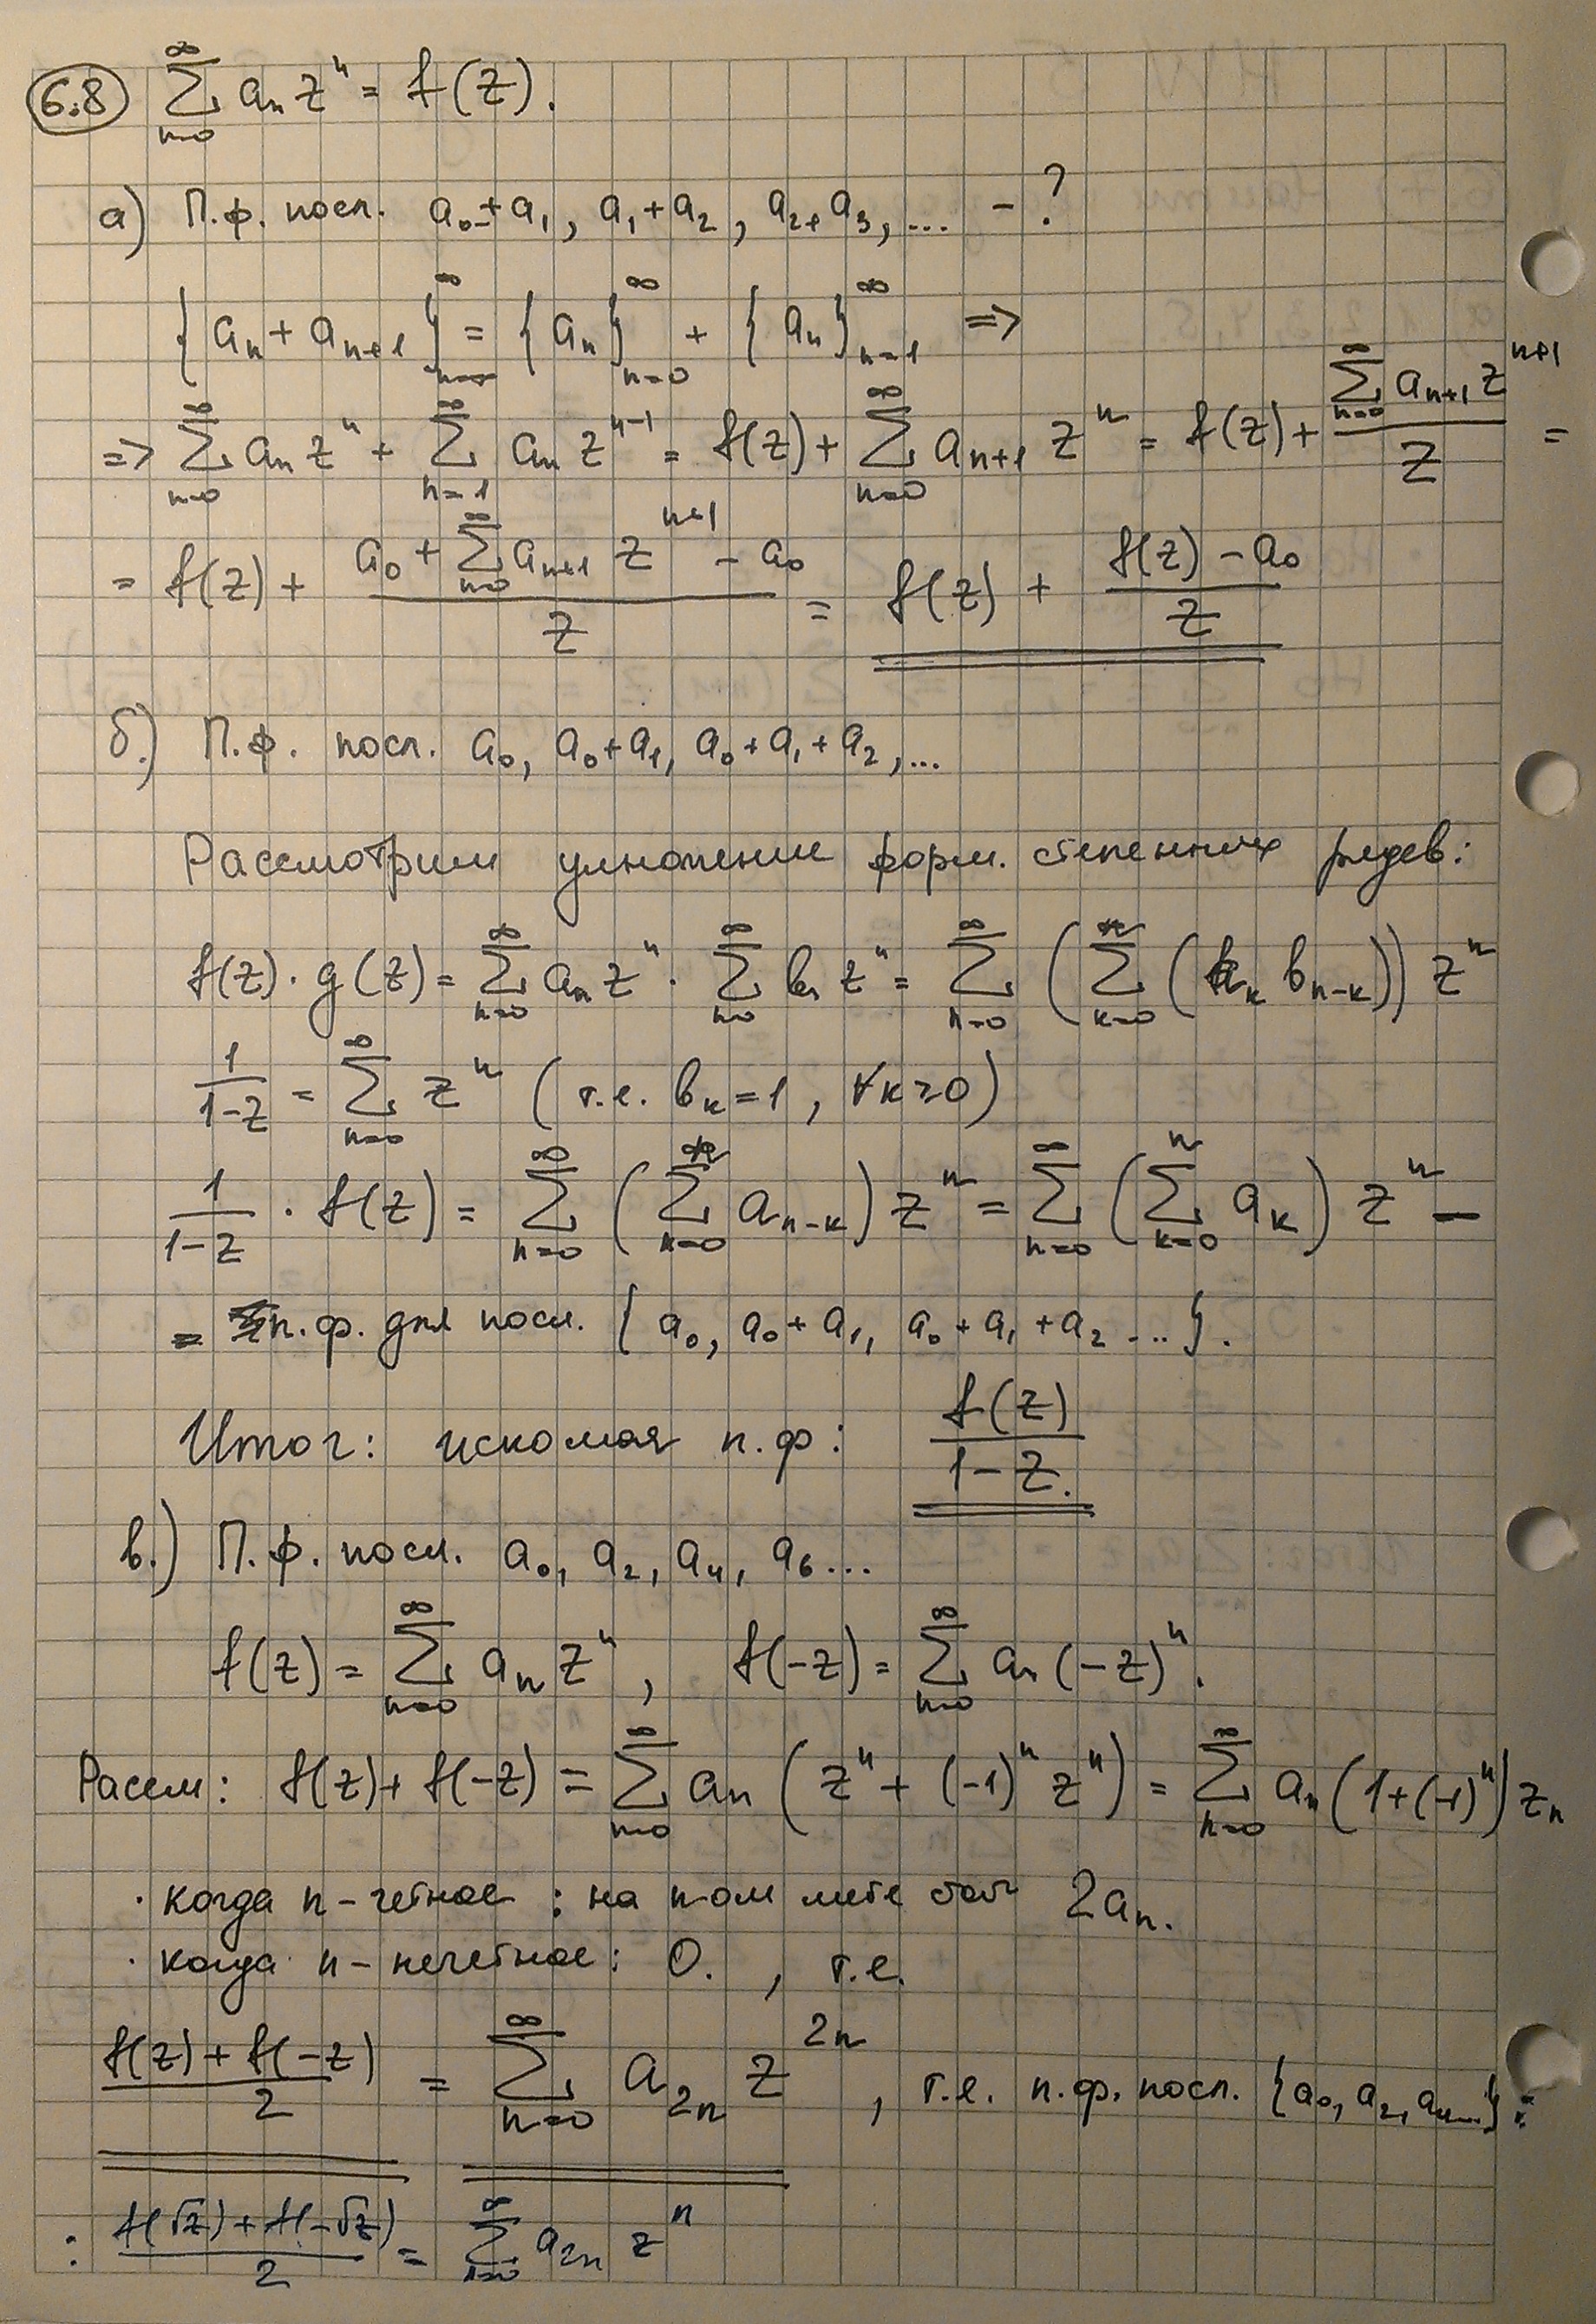 6.8 ∑_{n=0}^{∞} a_n z^n = f(z).
а) П.ф. посл. a_0+a_1, a_1+a_2, a_2+a_3, ... - ?
{a_n + a_{n+1}}_{n=0}^{∞} = {a_n}_{n=0}^{∞} + {a_n}_{n=1}^{∞} =>
=> ∑_{n=0}^{∞} a_n z^n + ∑_{n=1}^{∞} a_n z^{n-1} = f(z) + ∑_{n=0}^{∞} a_{n+1} z^n = f(z) + (∑_{n=0}^{∞} a_{n+1} z^{n+1})/z =
= f(z) + (a_0 + ∑_{n=0}^{∞} a_{n+1} z^{n+1} - a_0)/z = f(z) + (f(z) - a_0)/z
б.) П.ф. посл. a_0, a_0+a_1, a_0+a_1+a_2, ...
Рассмотрим умножение форм. степенных рядов:
f(z)·g(z) = ∑_{n=0}^{∞} a_n z^n · ∑_{n=0}^{∞} b_n z^n = ∑_{n=0}^{∞} (∑_{k=0}^{n} (a_k b_{n-k})) z^n
1/(1-z) = ∑_{n=0}^{∞} z^n (т.е. b_k=1, ∀k≥0)
1/(1-z) · f(z) = ∑_{n=0}^{∞} (∑_{k=0}^{n} a_{n-k}) z^n = ∑_{n=0}^{∞} (∑_{k=0}^{n} a_k) z^n =
= п.ф. для посл. {a_0, a_0+a_1, a_0+a_1+a_2 ...}.
Итог: искомая п.ф: f(z)/(1-z).
в.) П.ф. посл. a_0, a_2, a_4, a_6...
f(z) = ∑_{n=0}^{∞} a_n z^n, f(-z) = ∑_{n=0}^{∞} a_n (-z)^n.
Рассм: f(z)+f(-z) = ∑_{n=0}^{∞} a_n (z^n + (-1)^n z^n) = ∑_{n=0}^{∞} a_n (1+(-1)^n) z_n
· когда n - четное: на n-ом месте стоит 2a_n.
· когда n - нечетное: 0. , т.е.
(f(z)+f(-z))/2 = ∑_{n=0}^{∞} a_{2n} z^{2n}, т.е. п.ф. посл. {a_0, a_2, a_4...}:
: (f(√z)+f(-√z))/2 = ∑_{n=0}^{∞} a_{2n} z^n